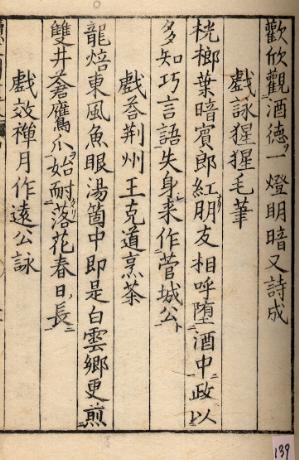 歡欣觀酒德一燈明暗又詩成
戲詠猩猩毛筆
桄榔葉暗賓郎紅朋友相呼墮酒中政以
多知巧言語失身來作管城公
戲荅荆州王克道烹茶
龍焙東風魚眼湯箇中即是白雲鄉更煎
雙井蒼鷹爪始耐落花春日長
戲效禪月作遠公詠
139